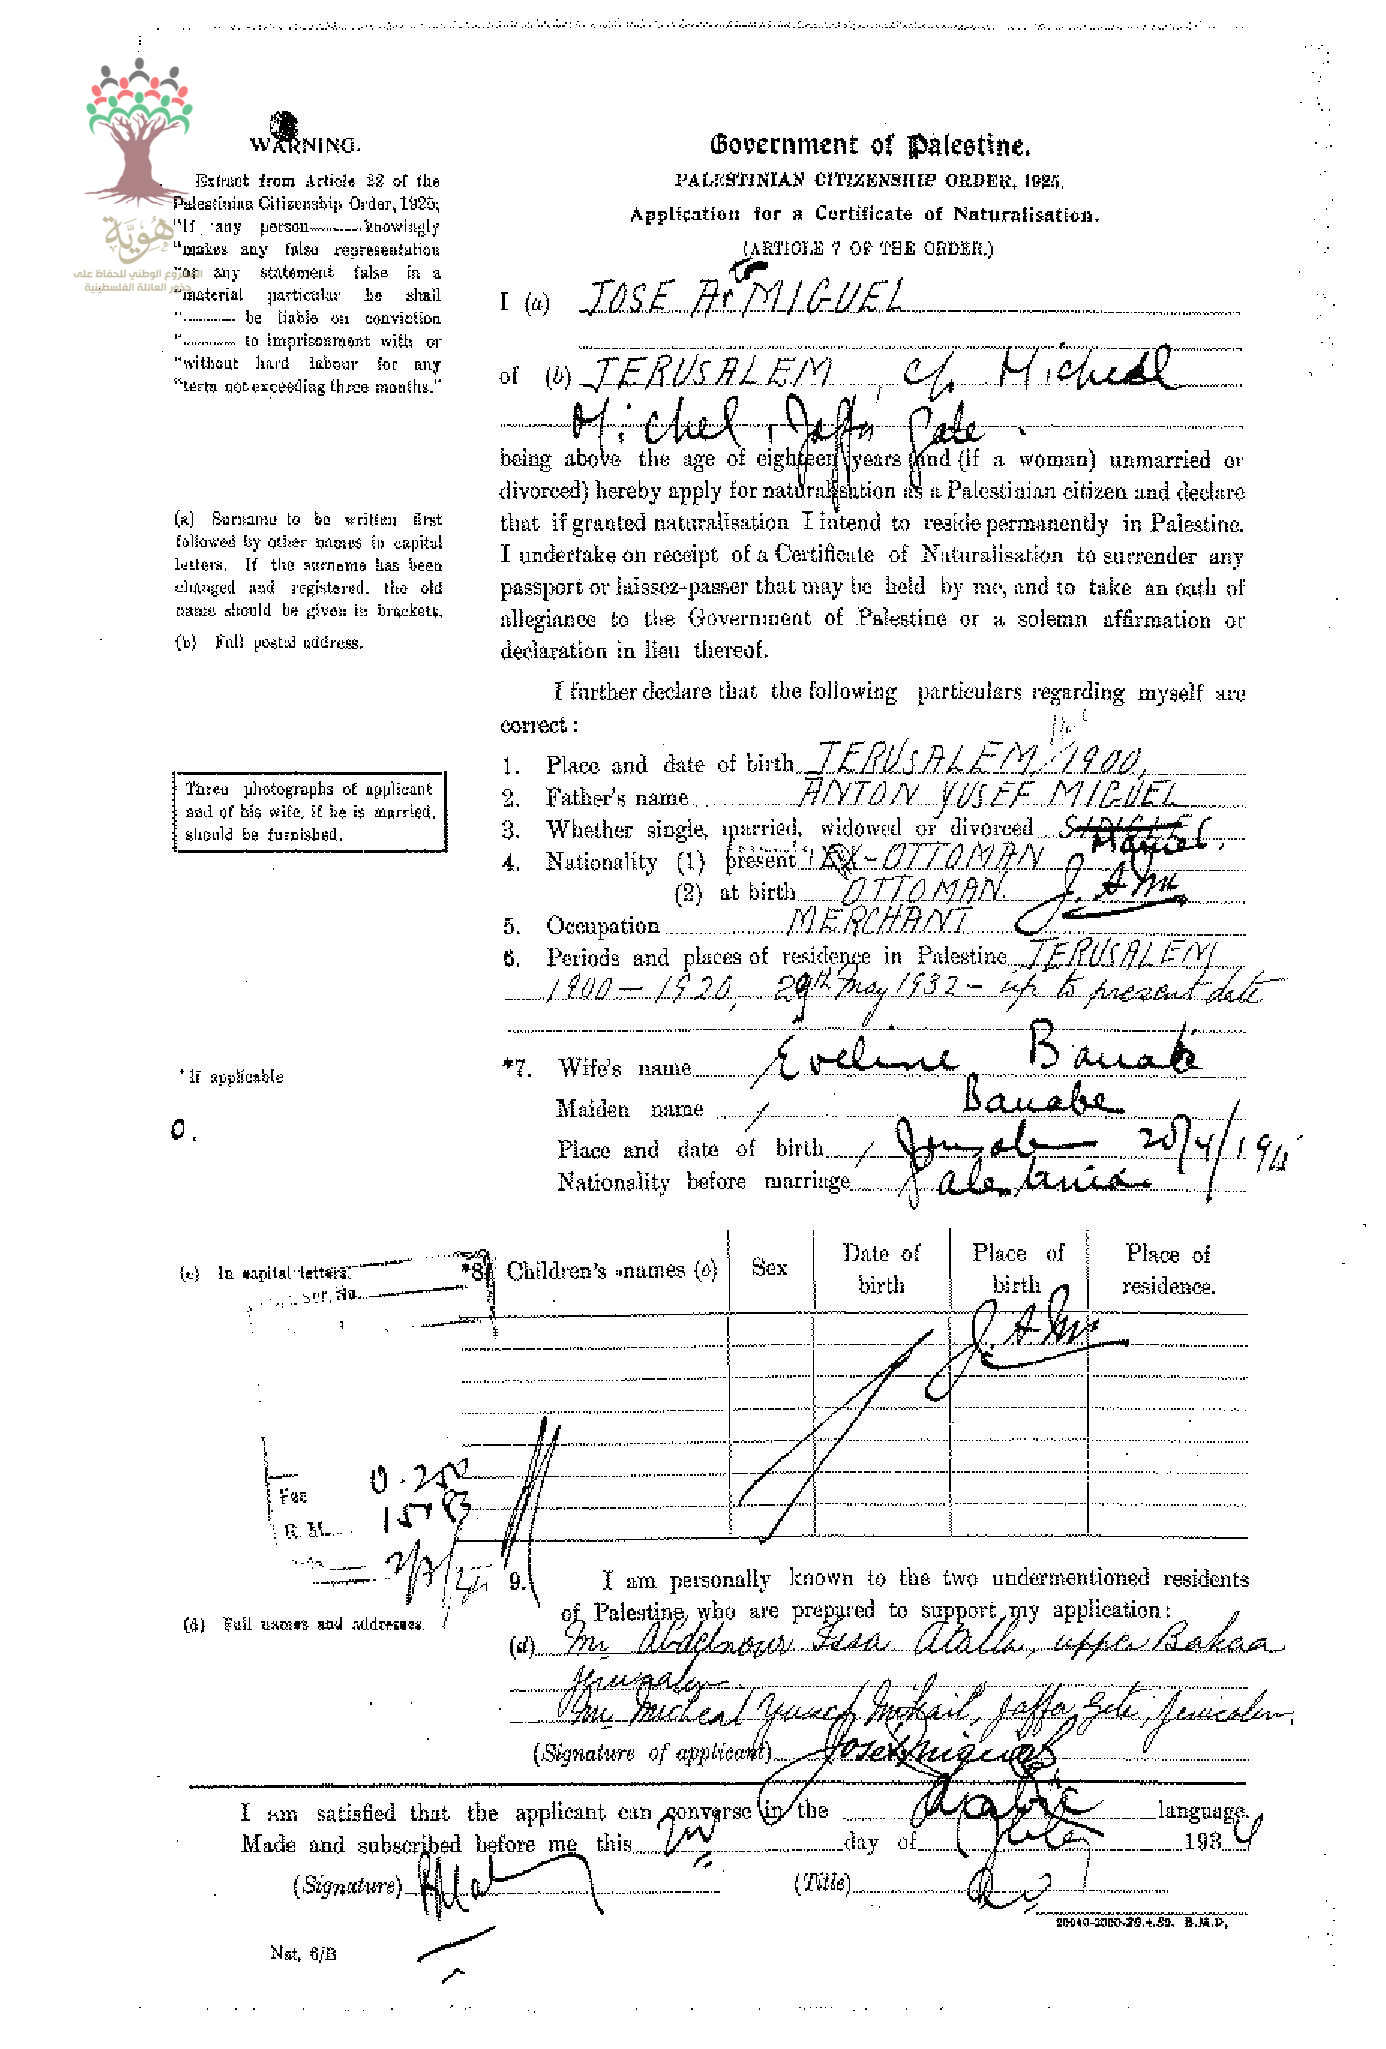 WARNING.
Extract from Article 22 of the
Palestinina Citizenship Order, 1925;
"If any person ........ knowingly
"makes any false representation
"or any statement false in a
"material particular he shall
"........ be liable on conviction
"........ to imprisonment with or
"without hard labour for any
"term not exceeding three months."
هُوِيَّة
المشروع الوطني للحفاظ على
جذور العائلة الفلسطينية
Government of Palestine.
PALESTINIAN CITIZENSHIP ORDER, 1925.
Application for a Certificate of Naturalisation.
(ARTICLE 7 OF THE ORDER.)
I (a) JOSE MIGUEL
of (b) JERUSALEM, c/o Micheal
Michel, Jaffa gate.
being above the age of eighteen years (and (if a woman) unmarried or
divorced) hereby apply for naturalisation as a Palestinian citizen and declare
that if granted naturalisation I intend to reside permanently in Palestine.
I undertake on receipt of a Certificate of Naturalisation to surrender any
passport or laissez-passer that may be held by me, and to take an oath of
allegiance to the Government of Palestine or a solemn affirmation or
declaration in lieu thereof.
(a) Surname to be written first
followed by other names in capital
letters. If the surname has been
changed and registered, the old
name should be given in brackets.
(b) Full postal address.
I further declare that the following particulars regarding myself are
correct:
1. Place and date of birth JERUSALEM, 1900,
2. Father's name ANTON YUSEF MIGUEL
3. Whether single, married, widowed or divorced SINGLE
4. Nationality (1) present EX-OTTOMAN
(2) at birth OTTOMAN. J. A. M
5. Occupation MERCHANT
6. Periods and places of residence in Palestine JERUSALEM
1900 - 1920, 29th May 1932 - up to present date
Three photographs of applicant
and of his wife, if he is married,
should be furnished.
* If applicable
*7. Wife's name Eveline Banabe
Maiden name Banabe
Place and date of birth 20/4/191
Nationality before marriage Palestinian
(c) In capital letters.
Ser. No.
*8. Children's names (c) Sex Date of birth Place of birth Place of residence.
Fee 0.250
R. N.
9. I am personally known to the two undermentioned residents
of Palestine, who are prepared to support my application:
(d) Full names and addresses.
(d) Mr Abdelnour Issa Atalla, upper Bakaa
Jerusalem
Mr Micheal Yusef Mikail, Jaffa Gate, Jerusalem.
(Signature of applicant) Jose Miguel
I am satisfied that the applicant can converse in the Arabic language.
Made and subscribed before me this day of 1934
(Signature) (Title)
29040-2000-29.4.32. B.M.D.
Nat. 6/B